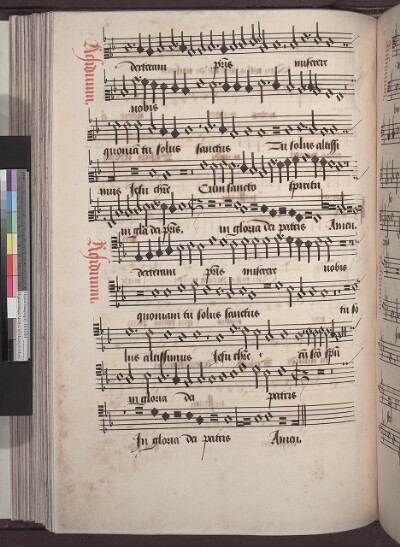 dexteram pr̄is miserere
nobis
quoniā tu solus sanctus Tu solus altissi
mus Jesu chr̄e Cum sancto spiritu
in gl̄a dei pr̄is. in gloria dei patris Amen.
dexteram pr̄is miserere nobis
quoniam tu solus sanctus tu so
lus altissimus Jesu chr̄e cū sc̄o sp̄u
in gloria dei patris
In gloria dei patris Amen.